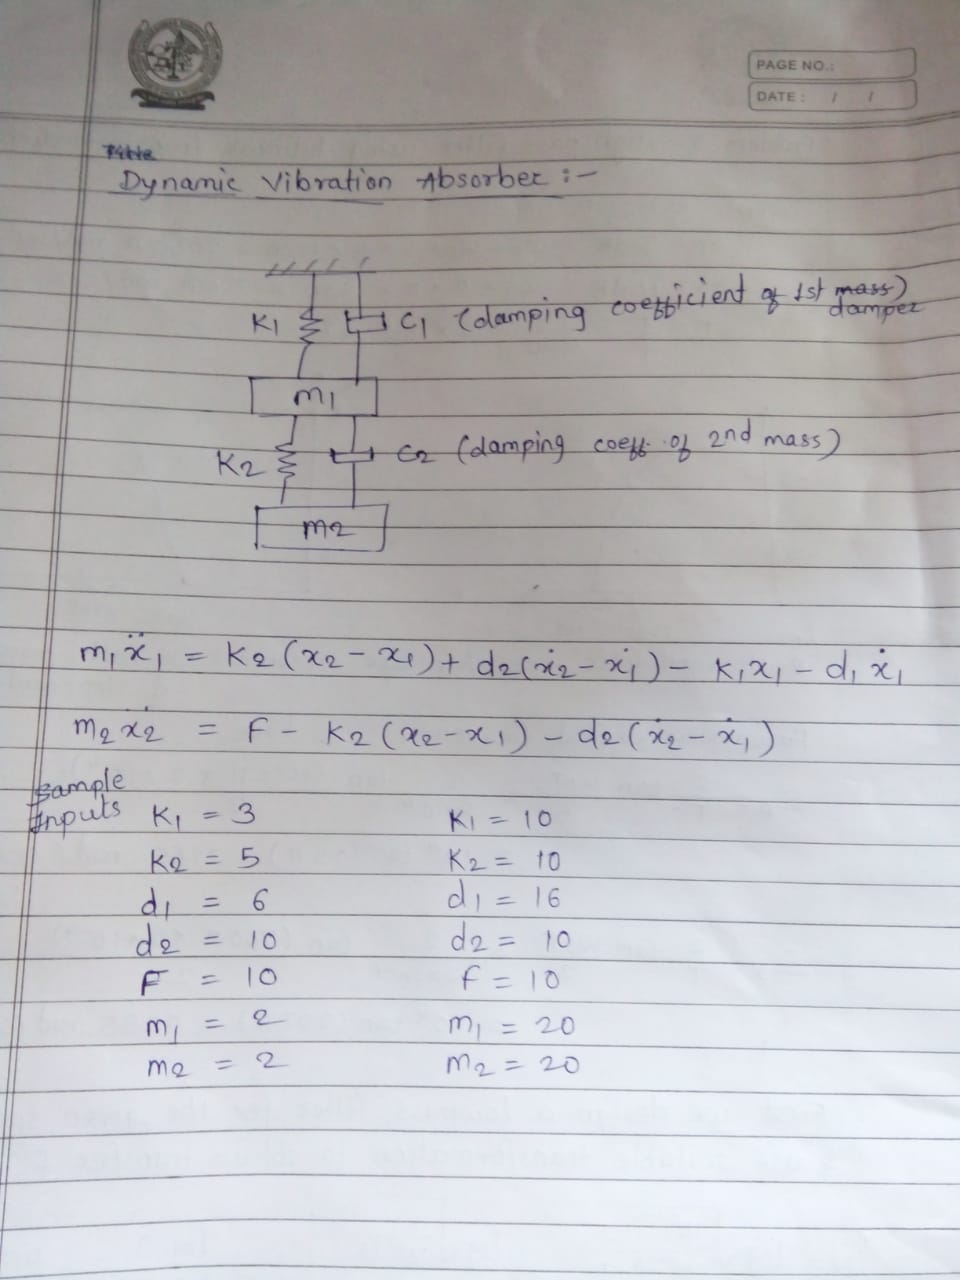 PAGE NO.:
DATE : / /
Title
Dynamic Vibration Absorber :-
K1 C1 (damping coefficient of 1st mass)
damper
m1
K2 C2 (damping coeff. of 2nd mass)
m2
m1ẍ1 = K2(x2 - x1) + d2(ẋ2 - ẋ1) - K1x1 - d1ẋ1
m2ẍ2 = F - K2(x2 - x1) - d2(ẋ2 - ẋ1)
Sample
Inputs K1 = 3 K1 = 10
K2 = 5 K2 = 10
d1 = 6 d1 = 16
d2 = 10 d2 = 10
F = 10 f = 10
m1 = 2 m1 = 20
m2 = 2 m2 = 20